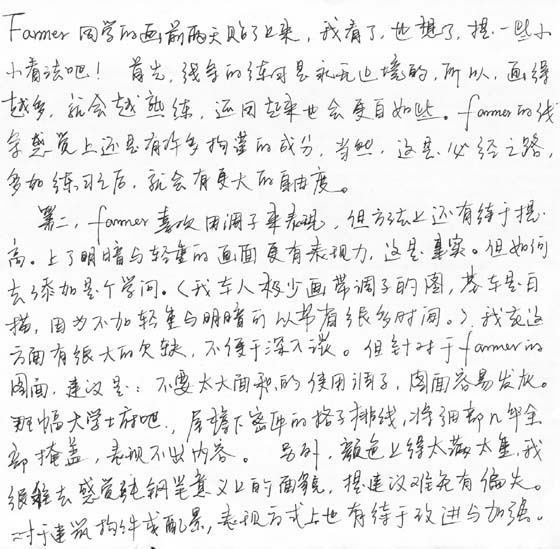 Farmer 同学的画前两天贴了上来，我看了，也想了，提一些小
小看法吧！ 首先，线条的练习是永无止境的，所以，画得
越多，就会越熟练，运用起来也会更自如些。farmer的线
条感觉上还是有许多拘谨的成分，当然，这是必经之路，
多加练习之后，就会有更大的自由度。
第二，farmer喜欢用调子来表现，但方法上还有待于提
高。上了明暗与轻重的画面更有表现力，这是事实。但如何
去添加是个学问。（我本人极少画带调子的图，基本是白
描，因为不加轻重与明暗可以节省很多时间。）我在这
方面有很大的欠缺，不便于深入谈。但针对于farmer的
图面，建议是：不要太大面积的使用调子，图面容易发灰。
那幅大学士府吧，屋檐下密密的格子排线，将细部几乎全
部掩盖，表现不出内容。 另外，颜色上得太满太重，我
很难去感觉纯钢笔意义上的面貌，提建议难免有偏失。
对于建筑构件或配景，表现方式上也有待于改进与加强。